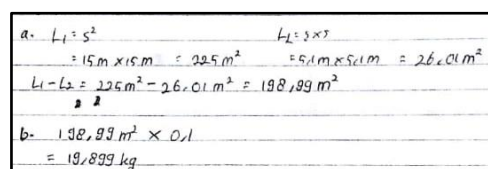 a. L1 = s² L2 = s x s
= 15 m x 15 m = 225 m² = 5,1 m x 5,1 m = 26,01 m²
L1 - L2 = 225 m² - 26,01 m² = 198,99 m²
b. 198,99 m² x 0,1
= 19,899 kg